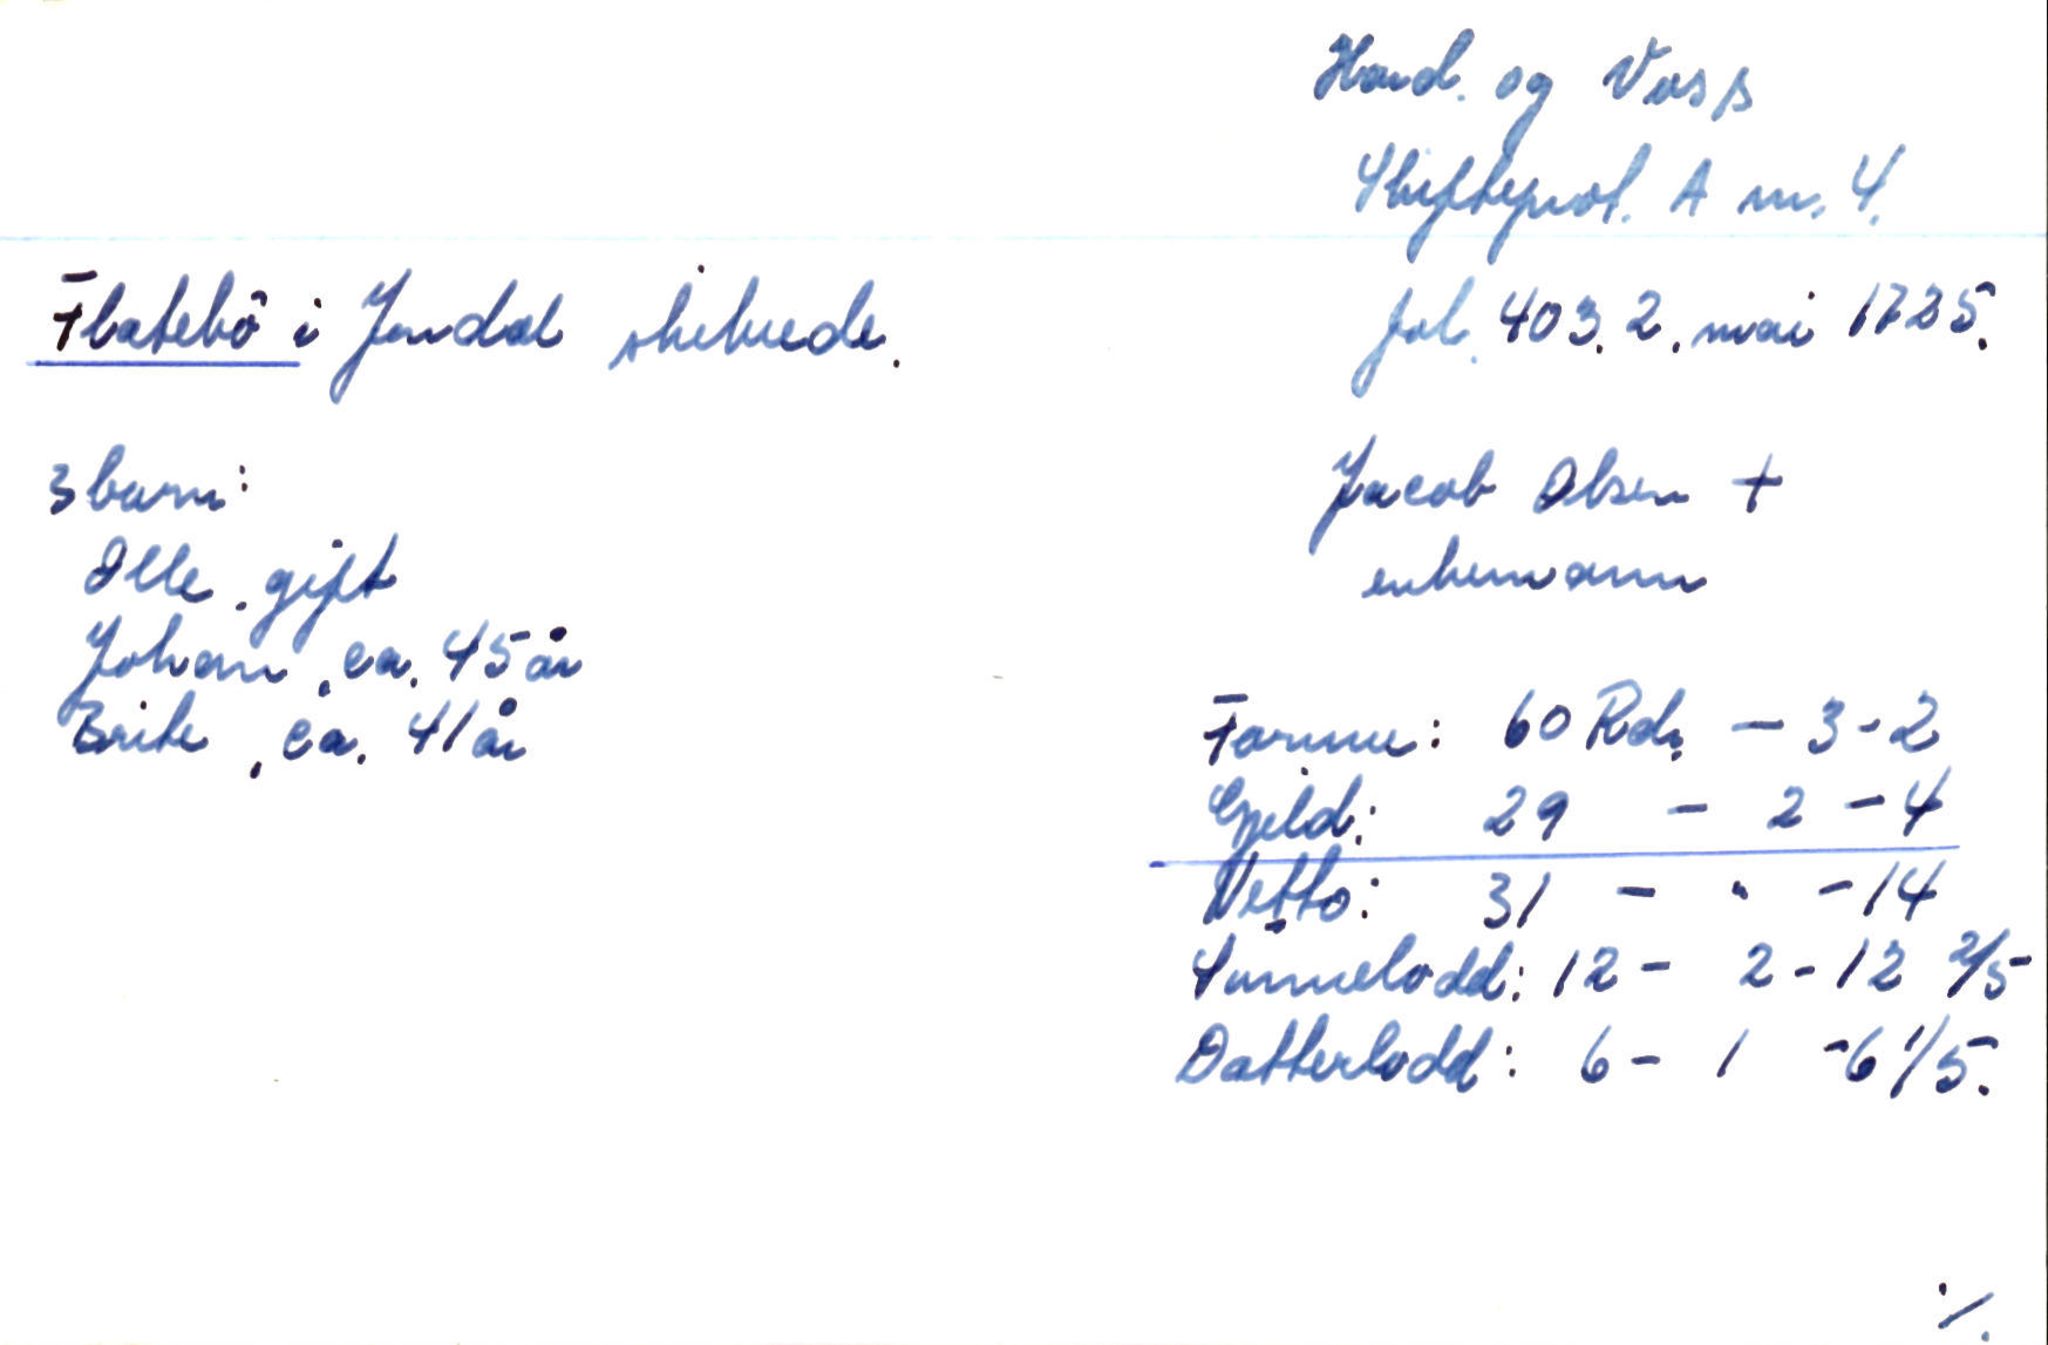 Hard. og Voss
Skifteprot. A nr. 4.
fol. 403. 2. mai 1725.
Flatebö i Jondal skibrede.
Jacob Olsen +
enkemann
3 barn:
Olle, gift
Johan, ca. 45 år
Brite, ca. 41 år
Formue: 60 Rd. - 3 - 2
Gjeld: 29 - 2 - 4
Netto: 31 - " - 14
Sønnelodd: 12 - 2 - 12 2/5
Datterlodd: 6 - 1 - 6 1/5.
./.